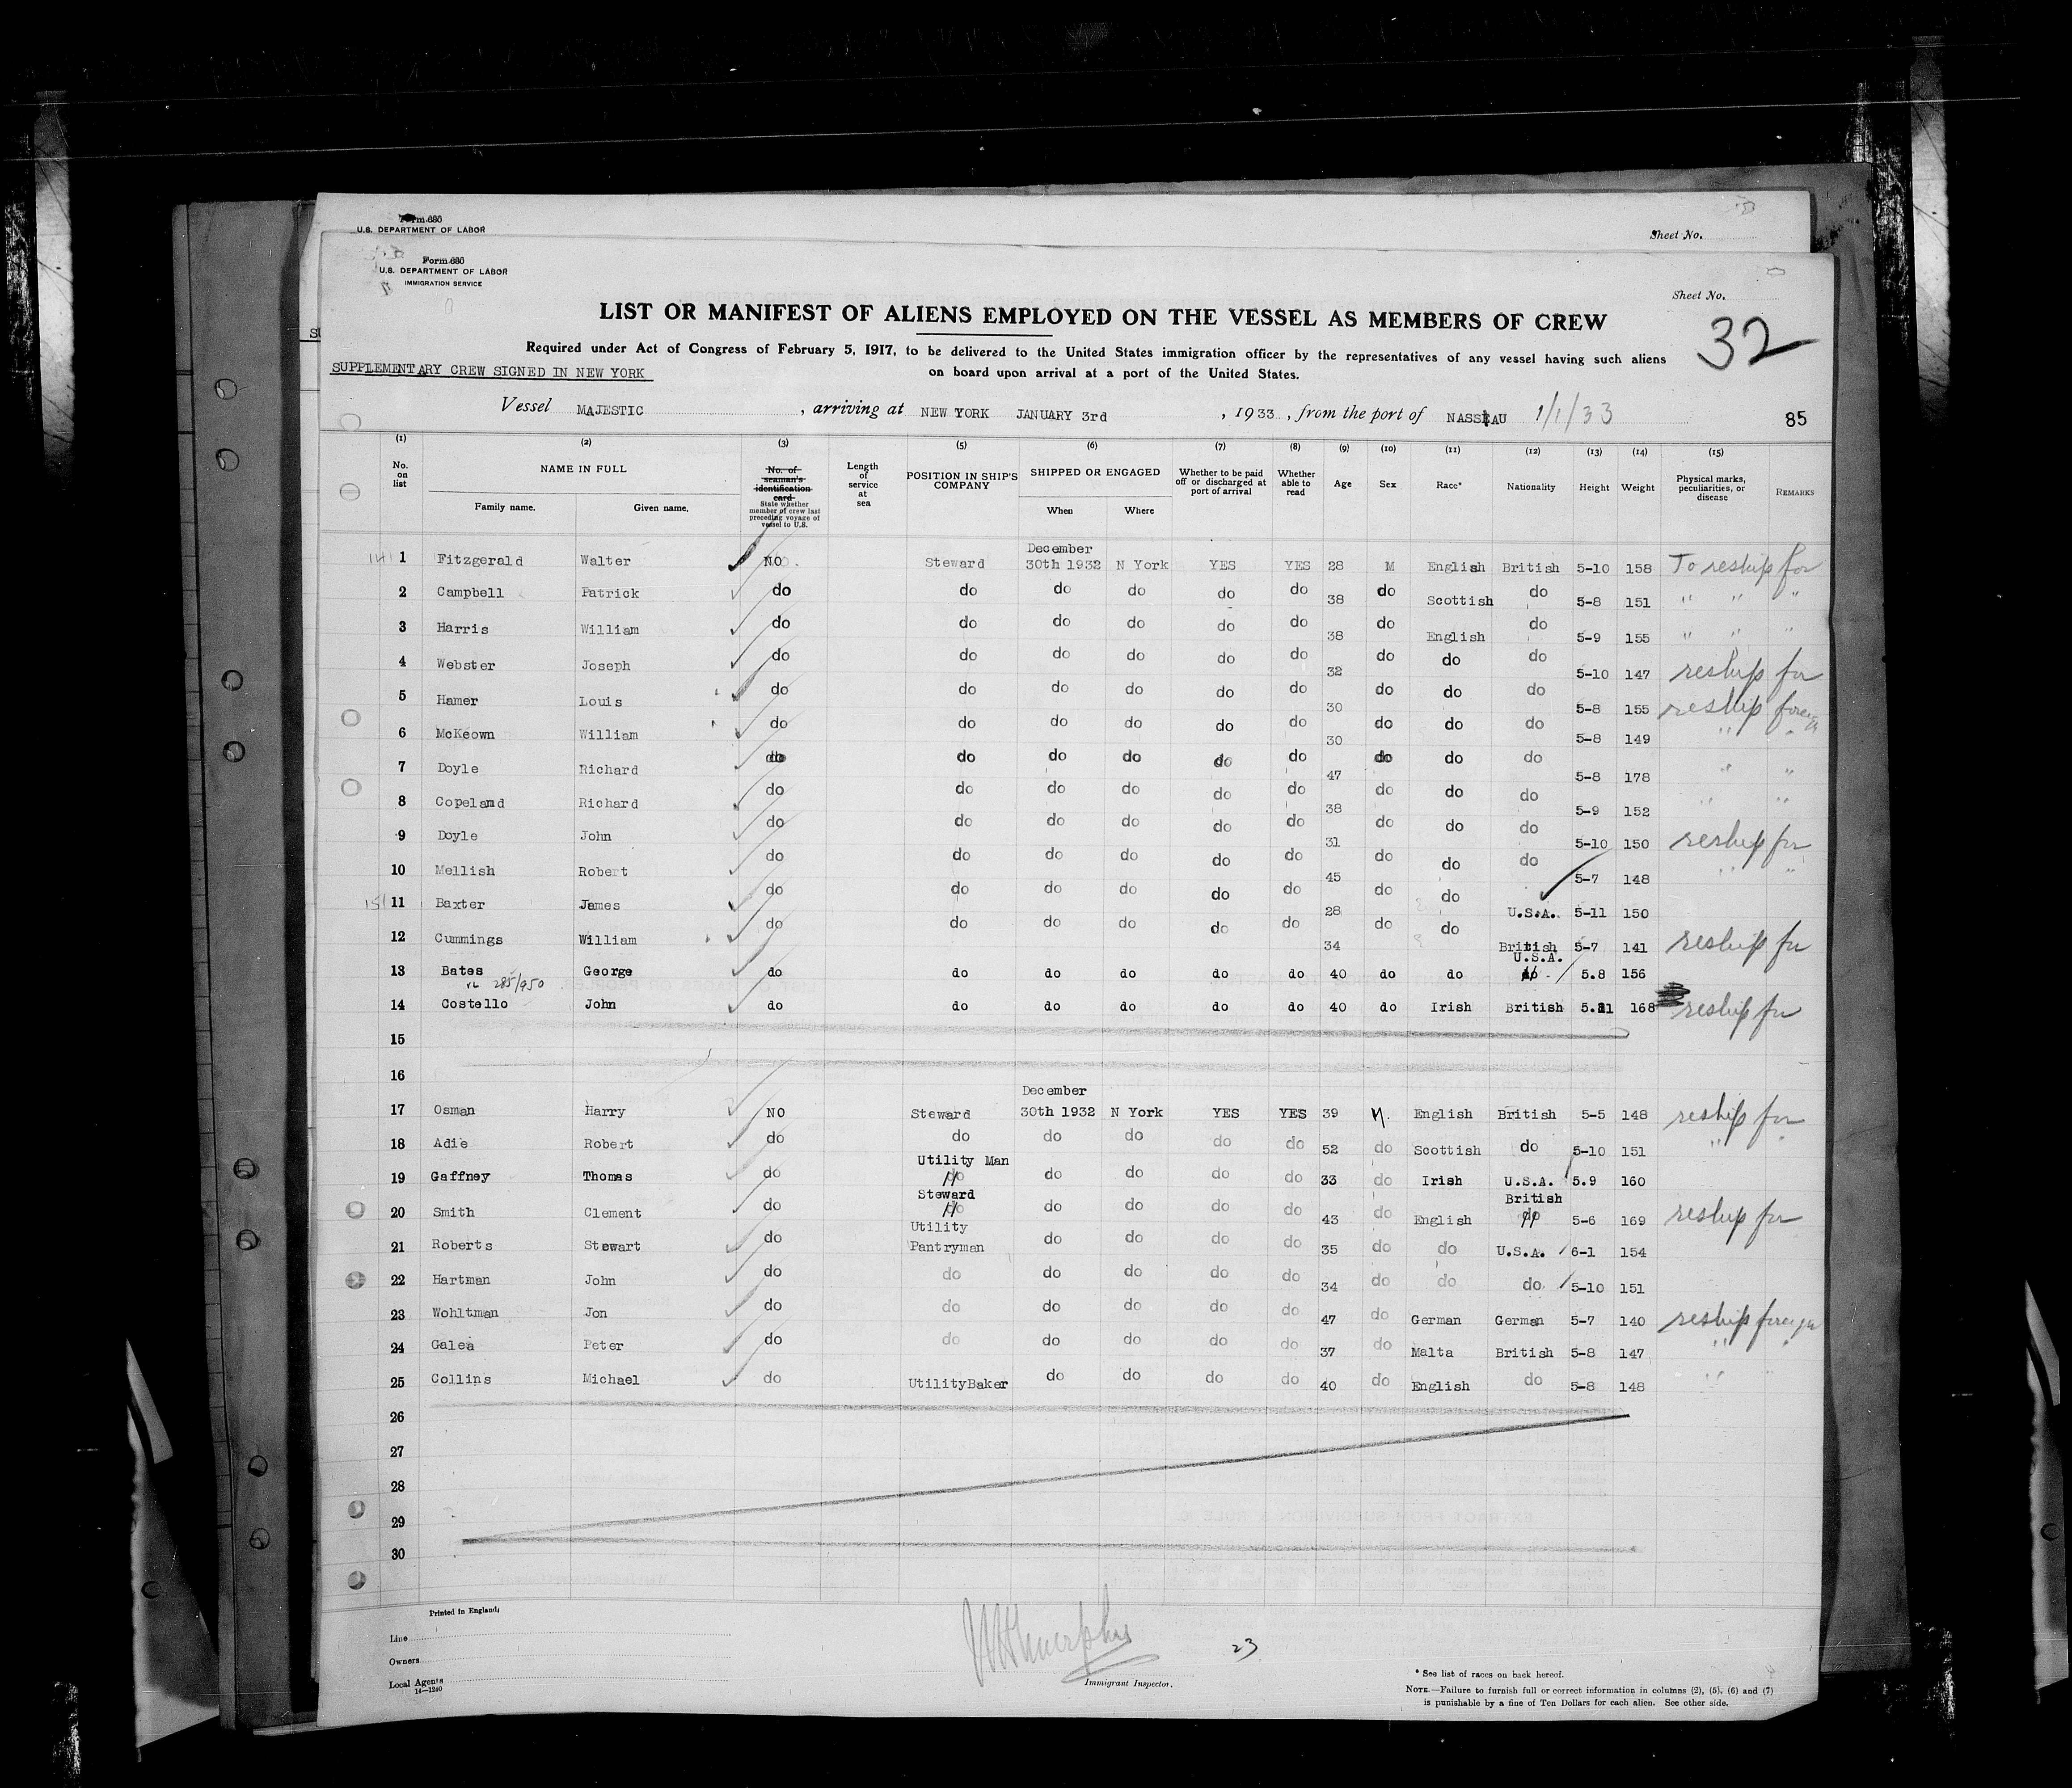 Form 680
U.S. DEPARTMENT OF LABOR
Sheet No.
Form 680
U.S. DEPARTMENT OF LABOR
IMMIGRATION SERVICE
Sheet No.
32
LIST OR MANIFEST OF ALIENS EMPLOYED ON THE VESSEL AS MEMBERS OF CREW
Required under Act of Congress of February 5, 1917, to be delivered to the United States immigration officer by the representatives of any vessel having such aliens
on board upon arrival at a port of the United States.
SUPPLEMENTARY CREW SIGNED IN NEW YORK
Vessel MAJESTIC, arriving at NEW YORK JANUARY 3rd, 1933, from the port of NASSAU 1/1/33
85
(1) (2) (3) (5) (6) (7) (8) (9) (10) (11) (12) (13) (14) (15)
No. on list
NAME IN FULL
Family name. Given name.
No. of seaman's identification card
State whether member of crew last preceding voyage of vessel to U.S.
Length of service at sea
POSITION IN SHIP'S COMPANY
SHIPPED OR ENGAGED
When Where
Whether to be paid off or discharged at port of arrival
Whether able to read
Age Sex Race* Nationality Height Weight
Physical marks, peculiarities, or disease
REMARKS
December
141 1 Fitzgerald Walter NO. Steward 30th 1932 N York YES YES 28 M English British 5-10 158 To reship for
2 Campbell Patrick do do do do do do 38 do Scottish do 5-8 151 " " "
3 Harris William do do do do do do 38 do English do 5-9 155 " " "
4 Webster Joseph do do do do do do 32 do do do 5-10 147 reship for
5 Hamer Louis do do do do do do 30 do do do 5-8 155 reship foreign
6 McKeown William do do do do do do 30 do do do 5-8 149 " "
7 Doyle Richard do do do do do do 47 do do do 5-8 178 " "
8 Copeland Richard do do do do do do 38 do do do 5-9 152 " "
9 Doyle John do do do do do do 31 do do do 5-10 150 reship for
10 Mellish Robert do do do do do do 45 do do do 5-7 148 " "
151 11 Baxter James do do do do do do 28 do do U.S.A. 5-11 150
12 Cummings William do do do do do do 34 do do British 5-7 141 reship for
U.S.A.
13 Bates George do do do do do do 40 do do do 5.8 156
285/950
14 Costello John do do do do do do 40 do Irish British 5.11 168 reship for
15
16
December
17 Osman Harry NO Steward 30th 1932 N York YES YES 39 M. English British 5-5 148 reship for
18 Adie Robert do do do do do do 52 do Scottish do 5-10 151 " "
Utility Man
19 Gaffney Thomas do do do do do do 33 do Irish U.S.A. 5.9 160
Steward British
20 Smith Clement do do do do do do 43 do English do 5-6 169 reship for
Utility
21 Roberts Stewart do Pantryman do do do do 35 do do U.S.A. 6-1 154
22 Hartman John do do do do do do 34 do do do 5-10 151
23 Wohltman Jon do do do do do do 47 do German German 5-7 140 reship foreign
24 Galea Peter do do do do do do 37 do Malta British 5-8 147 " "
25 Collins Michael do UtilityBaker do do do do 40 do English do 5-8 148 " "
26
27
28
29
30
Printed in England.
Line
Owners
Local Agents
14-1240
23
Immigrant Inspector.
* See list of races on back hereof.
NOTE.—Failure to furnish full or correct information in columns (2), (5), (6) and (7)
is punishable by a fine of Ten Dollars for each alien. See other side.